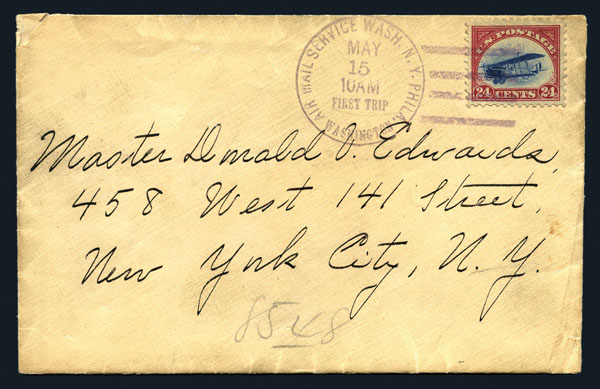 AIR MAIL SERVICE WASH. N.Y. PHILA.
MAY
15
10AM
FIRST TRIP
WASHINGTON
U.S. POSTAGE
24 CENTS 24
Master Donald J. Edwards,
458 West 141 Street,
New York City, N.Y.
8548